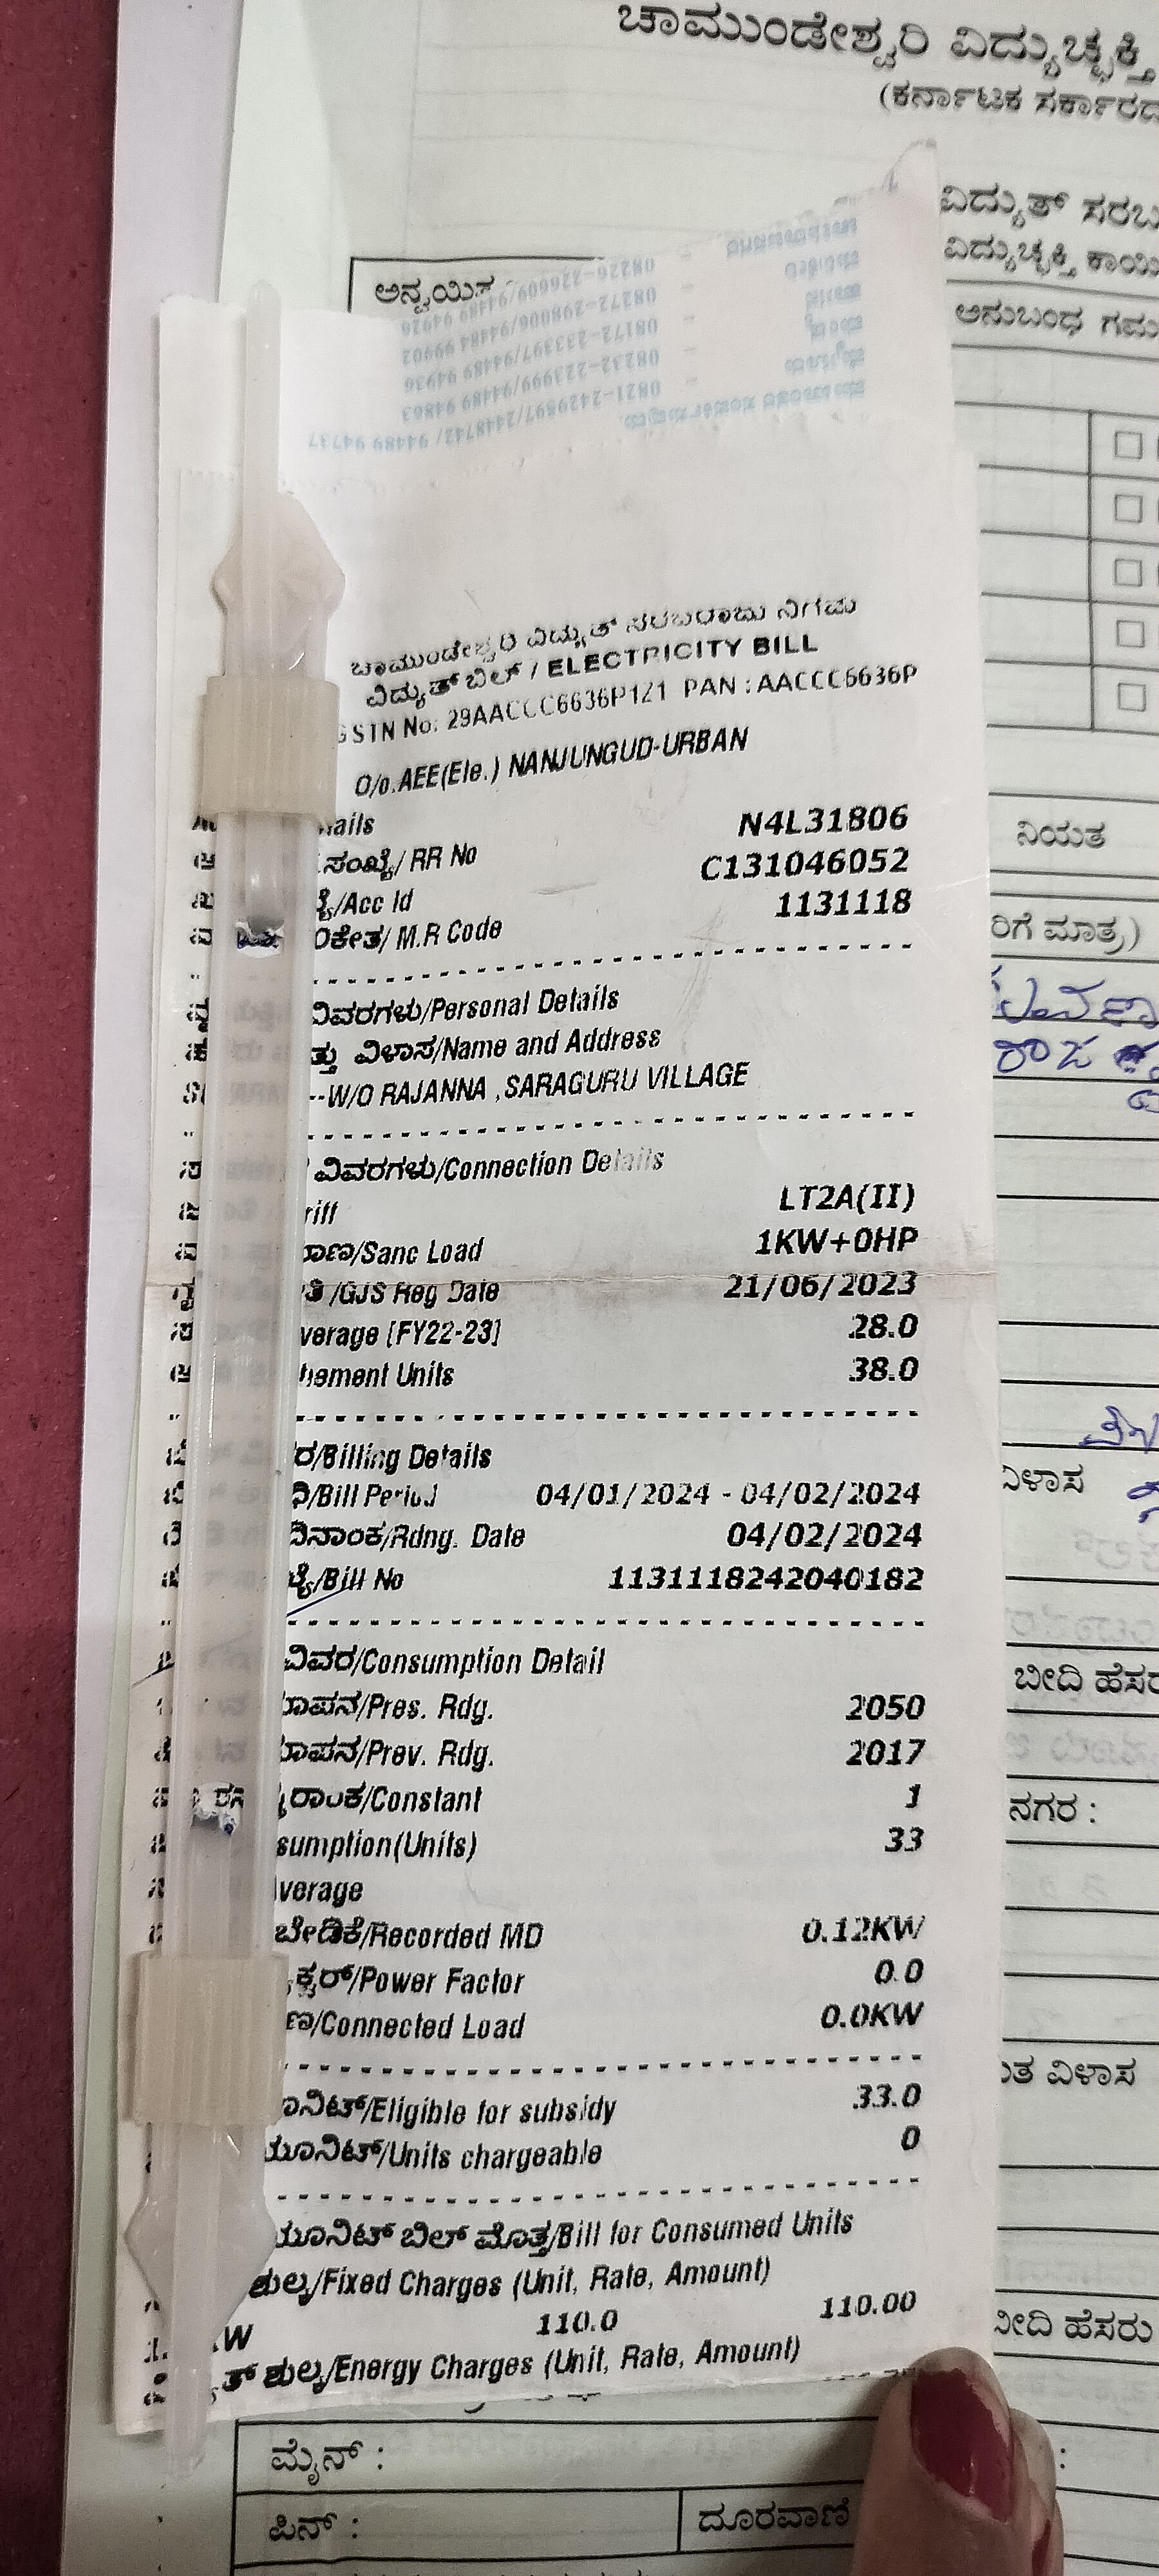 ಚಾಮುಂಡೇಶ್ವರಿ ವಿದ್ಯುಚ್ಛಕ್ತಿ
(ಕರ್ನಾಟಕ ಸರ್ಕಾರದ
ವಿದ್ಯುತ್ ಸರಬ
ವಿದ್ಯುಚ್ಛಕ್ತಿ ಕಾಯಿ
ಅನ್ವಯಿಸ
ಅನುಬಂಧ ಗಮ
08226-226609/94489 94926
08272-298006/94484 99902
08172-233397/94489 94936
08232-223999/94489 94863
0821-2429597/2448742/ 94489 94737
ಚಾಮುಂಡೇಶ್ವರಿ ವಿದ್ಯುತ್ ಸರಬರಾಜು ನಿಗಮ
ವಿದ್ಯುತ್ ಬಿಲ್ / ELECTRICITY BILL
GSTN No: 29AACCC6636P1Z1 PAN : AACCC6636P
O/o.AEE(Ele.) NANJUNGUD-URBAN
ails
ಸಂಖ್ಯೆ/ RR No N4L31806
/Acc Id C131046052
ಂಕೇತ/ M.R Code 1131118
ನಿಯತ
ರಿಗೆ ಮಾತ್ರ)
ವಿವರಗಳು/Personal Details
ತ್ತು ವಿಳಾಸ/Name and Address
--W/O RAJANNA ,SARAGURU VILLAGE
ವಿವರಗಳು/Connection Details
riff LT2A(II)
ಾಣ/Sanc Load 1KW+0HP
/GJS Reg Date 21/06/2023
verage [FY22-23] 28.0
lement Units 38.0
ರ/Billing Details
ಧಿ/Bill Period 04/01/2024 - 04/02/2024
ದಿನಾಂಕ/Rdng. Date 04/02/2024
ಖ್ಯೆ/Bill No 1131118242040182
ವಿಳಾಸ
ವಿವರ/Consumption Detail
ಮಾಪನ/Pres. Rdg. 2050
ಮಾಪನ/Prev. Rdg. 2017
ರಾಂಕ/Constant 1
sumption(Units) 33
verage
ಬೇಡಿಕೆ/Recorded MD 0.12KW
ಕ್ಟರ್/Power Factor 0.0
ಣ/Connected Load 0.0KW
ಬೀದಿ ಹೆಸರ
ನಗರ :
ತ ವಿಳಾಸ
ಯೂನಿಟ್/Eligible for subsidy 33.0
ಯೂನಿಟ್/Units chargeable 0
ಯೂನಿಟ್ ಬಿಲ್ ಮೊತ್ತ/Bill for Consumed Units
ಶುಲ್ಕ/Fixed Charges (Unit, Rate, Amount)
KW 110.0 110.00
ತ್ ಶುಲ್ಕ/Energy Charges (Unit, Rate, Amount)
ಬೀದಿ ಹೆಸರು
ಮೈನ್ :
ಪಿನ್ :
ದೂರವಾಣಿ